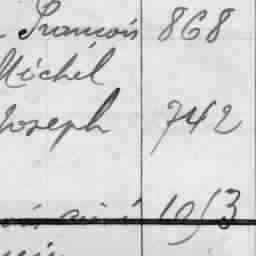 François 868
Michel
Joseph 742
1953